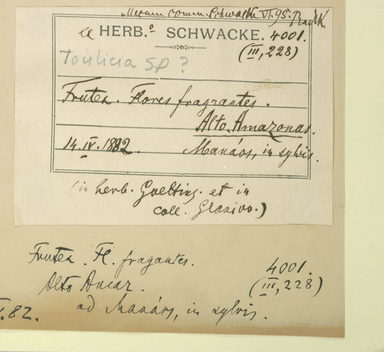 Mecum comm. Schwacke VI.95.
a HERB.º SCHWACKE. 4001.
(III, 228)
Toulicia sp?
Frutex. Flores fragrantes.
Alto Amazonas.
14.IV.1882 Manáos, in sylvis.
(in herb. Goetting. et in
coll. Glaziou.)
Frutex. Fl. fragantes. 4001.
Alto Amaz. (III, 228)
.82. ad Manáos, in sylvis.